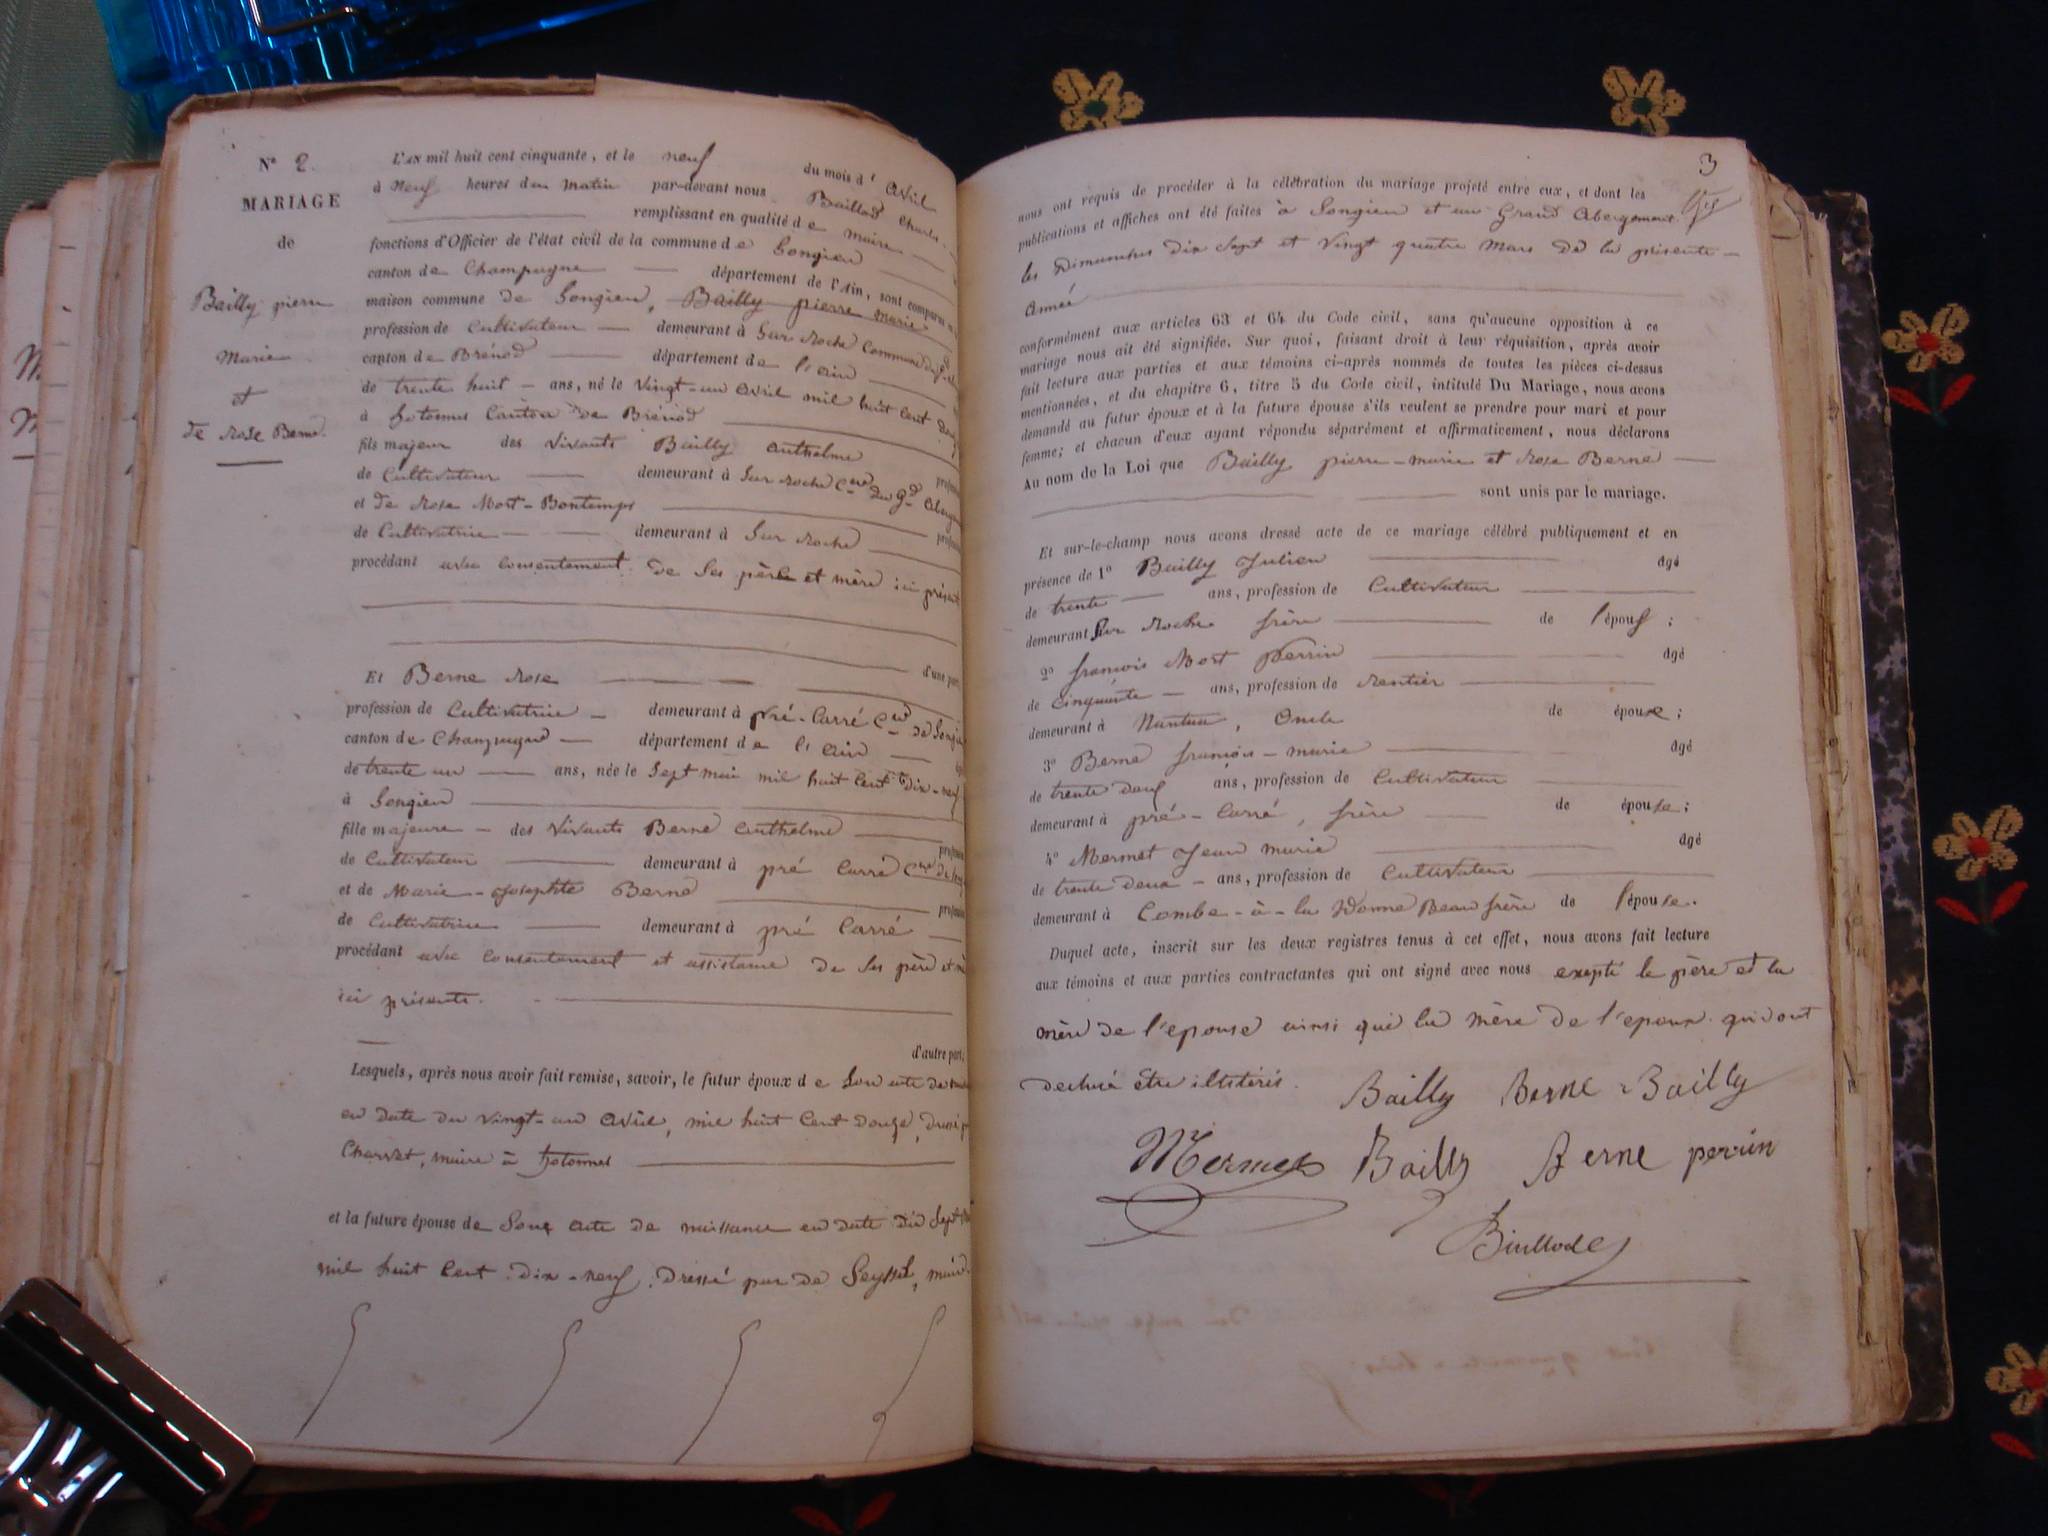 N° 2.
MARIAGE
de
Bailly pierre
Marie
et
de Rose Berne.
L'AN mil huit cent cinquante, et le neuf du mois d' avril
à neuf heures du matin par-devant nous Baillod Charles
remplissant en qualité de maire
fonctions d'Officier de l'état civil de la commune de Songieu
canton de Champagne département de l'Ain, sont comparus
maison commune de Songieu, Bailly pierre marie
profession de Cultivateur demeurant à Sur Roche Commune du
canton de Brénod département de l'ain
de trente huit ans, né le vingt-un avril mil huit cent
à hotonnes Canton de Brénod
fils majeur des vivants Bailly anthelme
de Cultivateur demeurant à Sur Roche Cne du gd
et de Rose Mort-Bontemps
de Cultivatrice demeurant à Sur Roche
procédant avec consentement de ses père et mère ici présents
d'une part,
Et Berne Rose
profession de Cultivatrice demeurant à pré-Carré Cne de Songieu
canton de Champagne département de l'ain
de trente un ans, née le Sept mai mil huit cent dix-neuf
à Songieu
fille majeure des vivants Berne anthelme
de Cultivateur demeurant à pré Carré Cne de
et de Marie-Josephte Berne
de Cultivatrice demeurant à pré Carré
procédant avec consentement et assistance de ses père et
ici présents.
d'autre part,
Lesquels, après nous avoir fait remise, savoir, le futur époux de Son acte de
en date du vingt-un avril, mil huit cent douze, dressé
Charvet, maire à hotonnes
et la future épouse de Son acte de naissance en date du Sept
mil huit cent dix-neuf. Dressé par de Seyssel, maire.
3
nous ont requis de procéder à la célébration du mariage projeté entre eux, et dont les
publications et affiches ont été faites à Songieu et au Grand abergement
les Dimanches dix sept et vingt quatre mars de la présente
année
conformément aux articles 63 et 64 du Code civil, sans qu'aucune opposition à ce
mariage nous ait été signifiée. Sur quoi, faisant droit à leur réquisition, après avoir
fait lecture aux parties et aux témoins ci-après nommés de toutes les pièces ci-dessus
mentionnées, et du chapitre 6, titre 5 du Code civil, intitulé Du Mariage, nous avons
demandé au futur époux et à la future épouse s'ils veulent se prendre pour mari et pour
femme; et chacun d'eux ayant répondu séparément et affirmativement, nous déclarons
Au nom de la Loi que Bailly pierre-marie et Rose Berne
sont unis par le mariage.
Et sur-le-champ nous avons dressé acte de ce mariage célébré publiquement et en
présence de 1° Bailly Julien âgé
de trente ans, profession de Cultivateur
demeurant Sur Roche frère de l'époux ;
2° françois Mort perrin âgé
de cinquante ans, profession de Rentier
demeurant à Nantua, Oncle de épouse ;
3° Berne françois-marie âgé
de trente ans, profession de Cultivateur
demeurant à pré-Carré, frère de épouse ;
4° Mermet Jean marie âgé
de trente deux ans, profession de Cultivateur
demeurant à Combe-à-la Beau frère de l'épouse.
Duquel acte, inscrit sur les deux registres tenus à cet effet, nous avons fait lecture
aux témoins et aux parties contractantes qui ont signé avec nous excepté le père et la
mère de l'epouse ainsi que la mère de l'epoux qui ont
declaré être
Bailly Berne Bailly
Mermet Bailly Berne perrin
Baillod